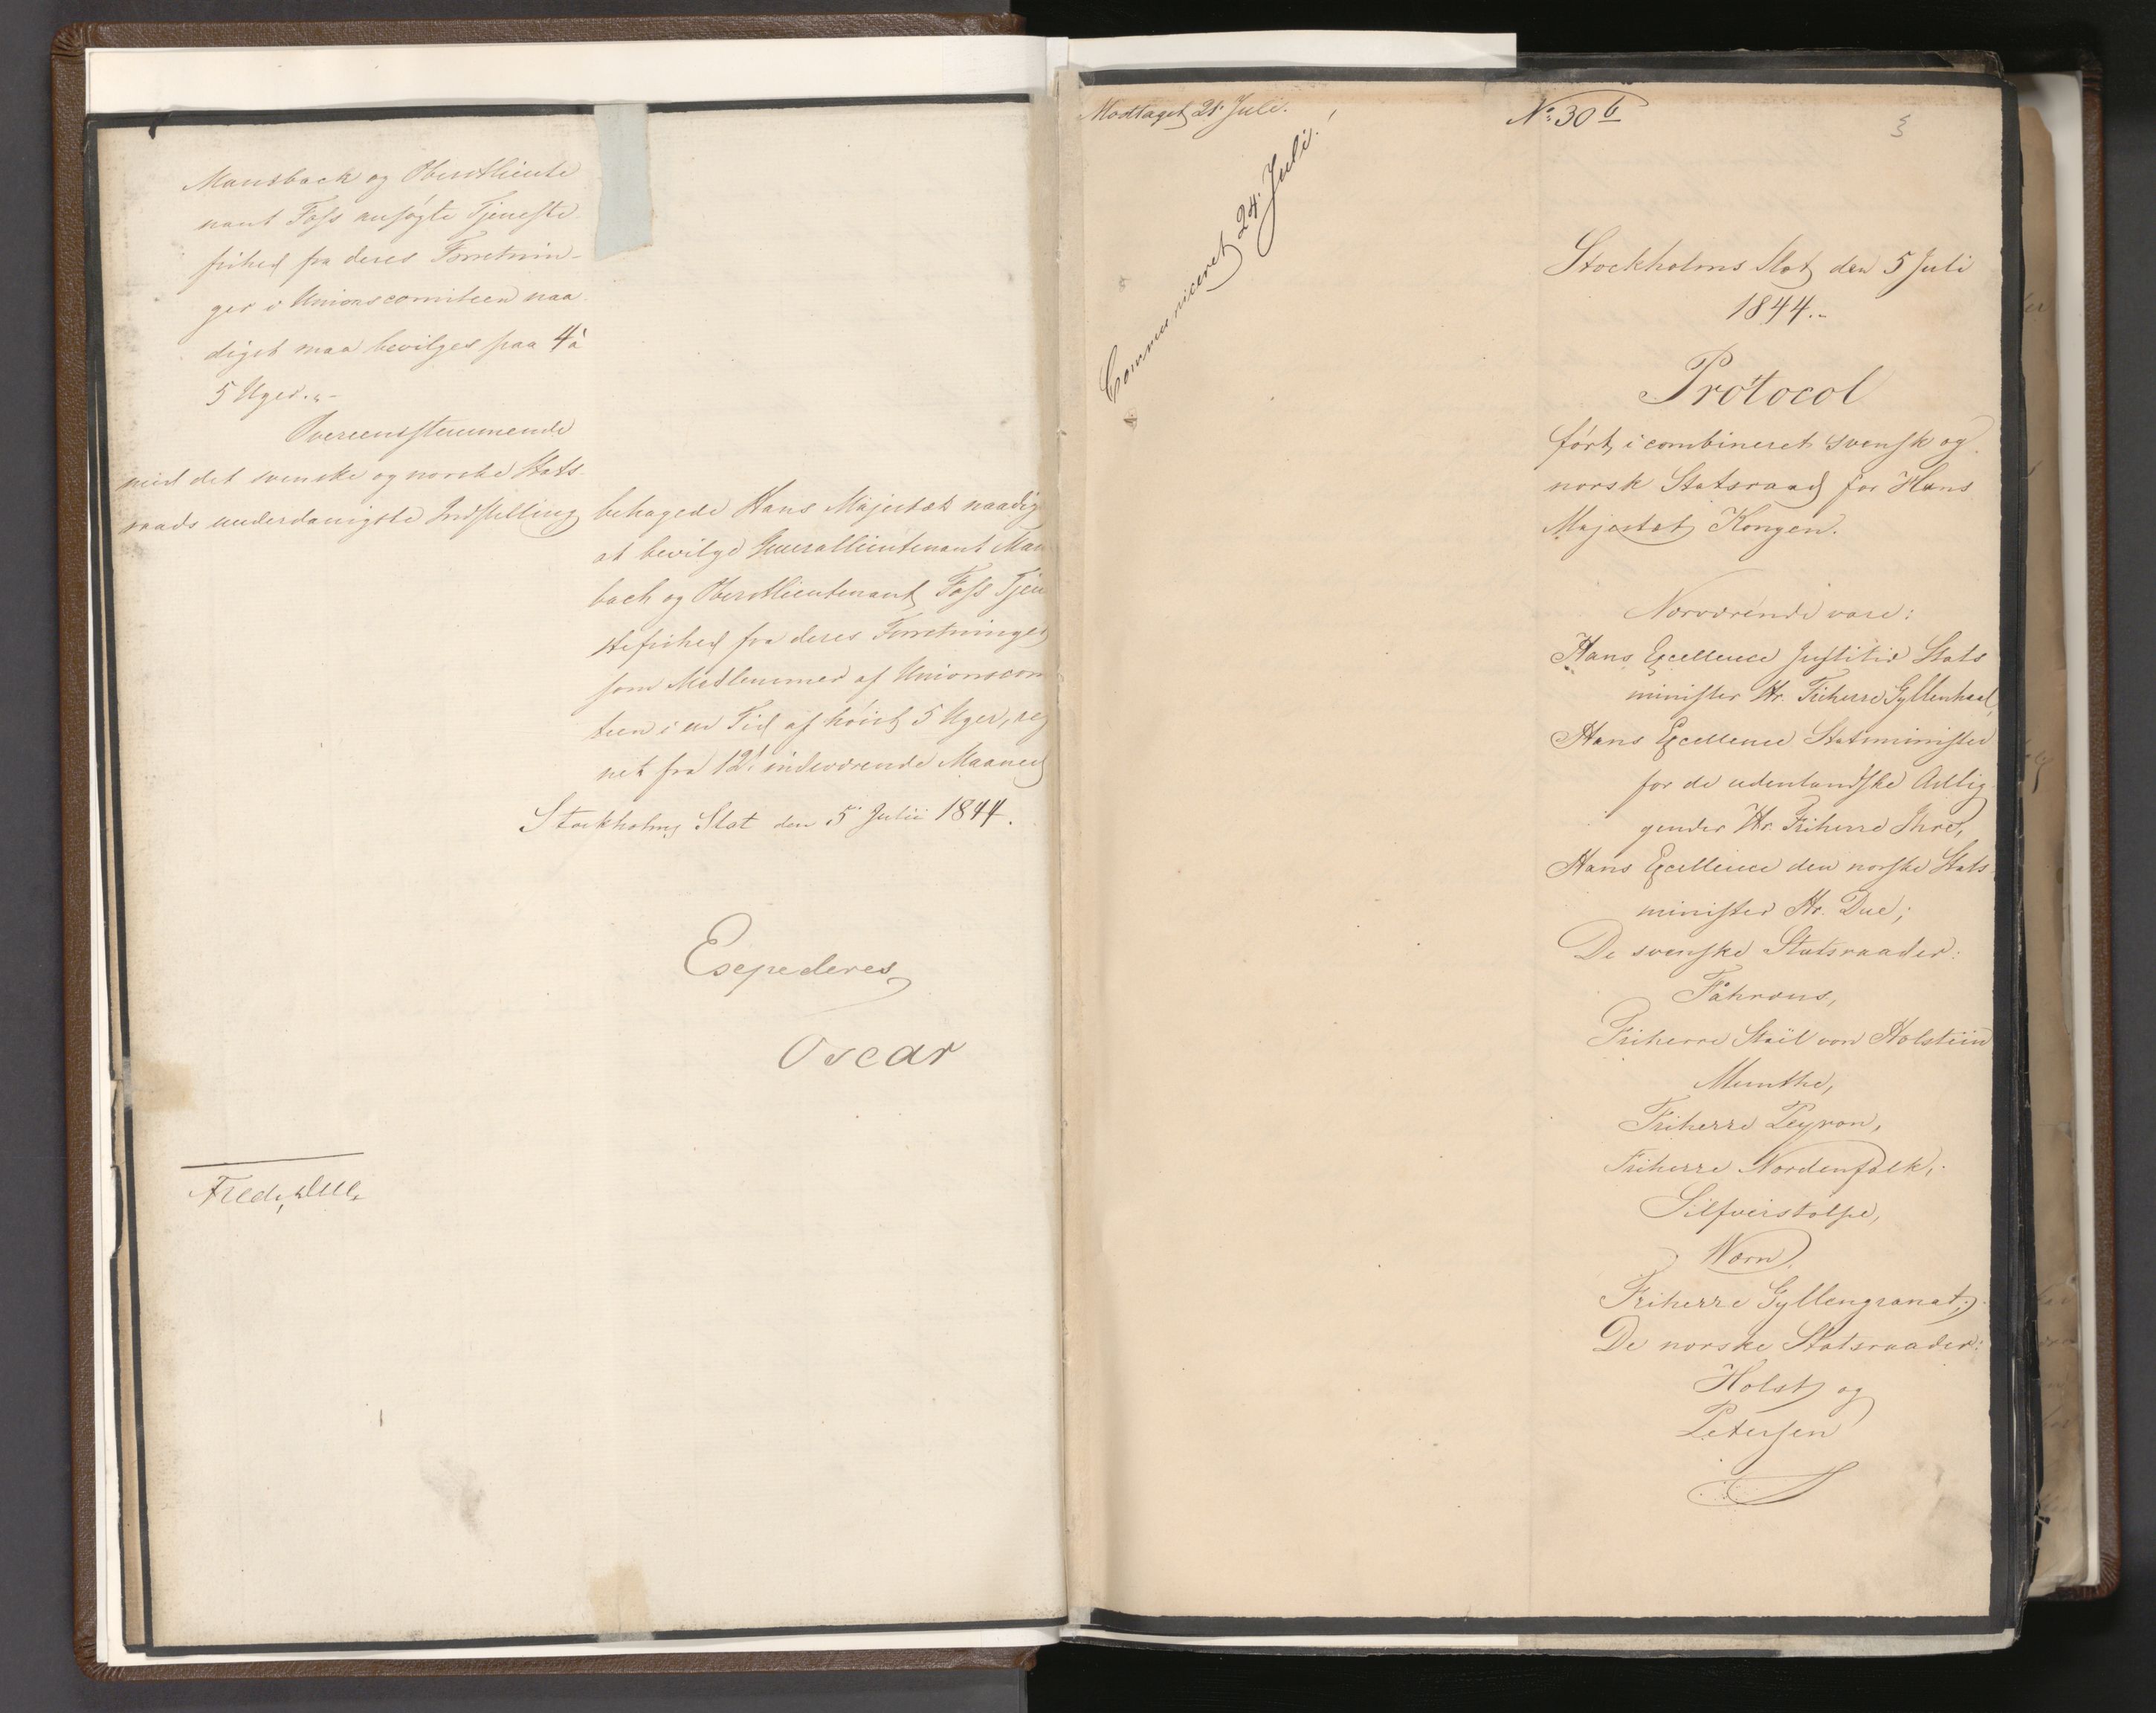 Mansbach og Oberstlieute
nant Foss ansøgte Tjeneste
frihed fra deres Forretnin-
ger i Unionscomiteen naa
digst maa bevilges paa 4 à
5 Uger.
Overeensstemmende
med det svenske og norske Stats-
raads underdanigste Indstilling behagede Hans Majestæt naadigst
at bevilge Generallieutenant Mans
bach og Oberstlieutenant Foss Tjene
stefrihed fra deres Forretninger
som Medlemmer af Unionscomi
teen i en Tid af høist 5 Uger, reg
net fra 12te indeværende Maaned
Stockholms Slot den 5 Julii 1844.
Expederes
Oscar
Fred. Due
Modtaget 21 Juli.
Communiceret 24 Juli.
No: 30 b
3
Stockholms Slot den 5 Juli
1844.-
Protocol
ført i combineret svensk og
norsk Statsraad for Hans
Majestæt Kongen.
Nærværende vare:
Hans Excellence Justitie Stats
minister Hr. Friherre Gyllenhaal,
Hans Excellence Statsminister
for de udenlandske Anlig
gender Hr. Friherre Ihre,
Hans Excellence den norske Stats
minister Hr. Due;
De svenske Statsraader:
Fåhræus,
Friherre Staël von Holstein
Munthe,
Friherre Peyron,
Friherre Nordenfalk,
Silfverstolpe,
Wærn,
Friherre Gyllengranat;
De norske Statsraader:
Holst og
Petersen